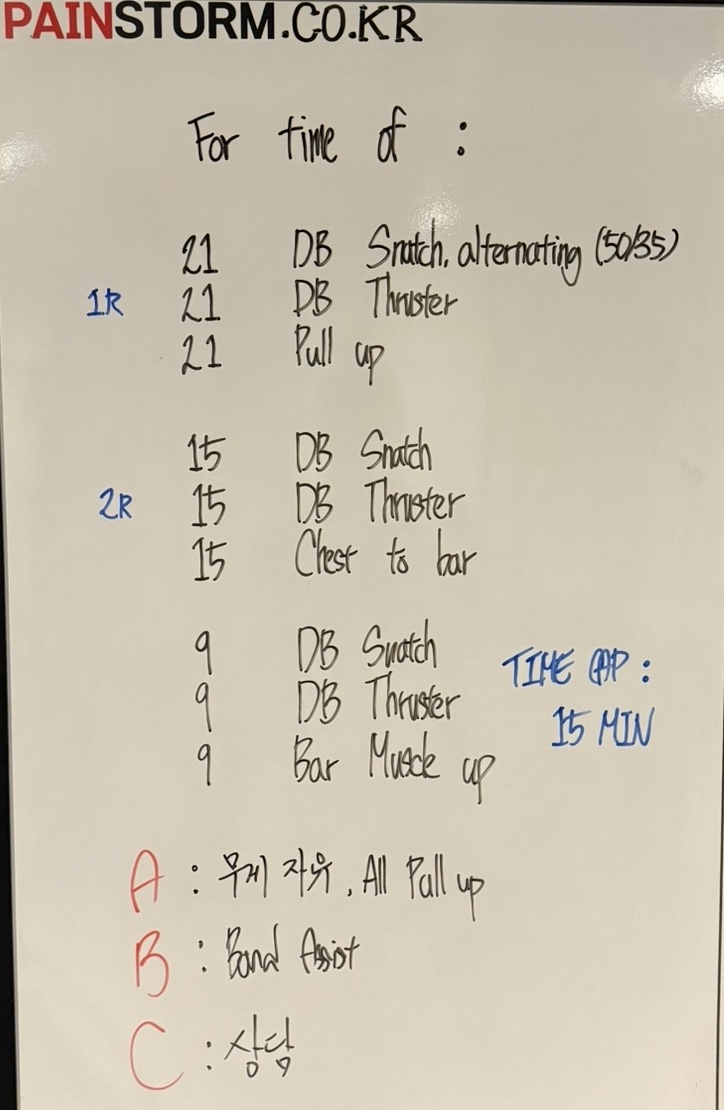 PAINSTORM.CO.KR
For time of :
21 DB Snatch, alternating (50/35)
1R 21 DB Thruster
21 Pull up
15 DB Snatch
2R 15 DB Thruster
15 Chest to bar
9 DB Snatch
9 DB Thruster
9 Bar Muscle up
TIME CAP :
15 MIN
A : 무게 자유, All Pull up
B : Band Assist
C : 상담